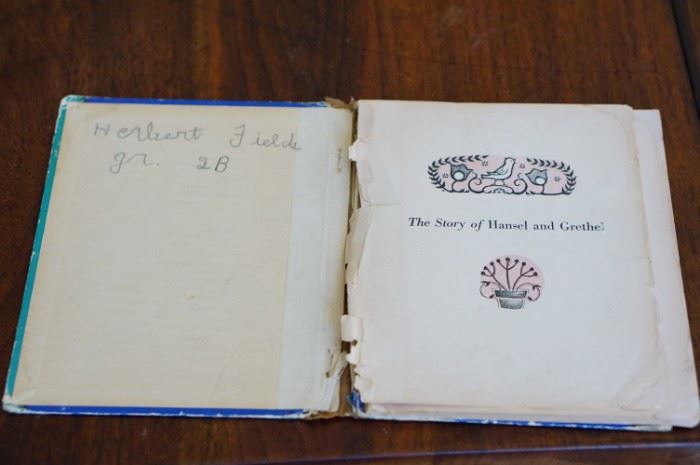 Herbert Fields
gr. 2B
The Story of Hansel and Grethel